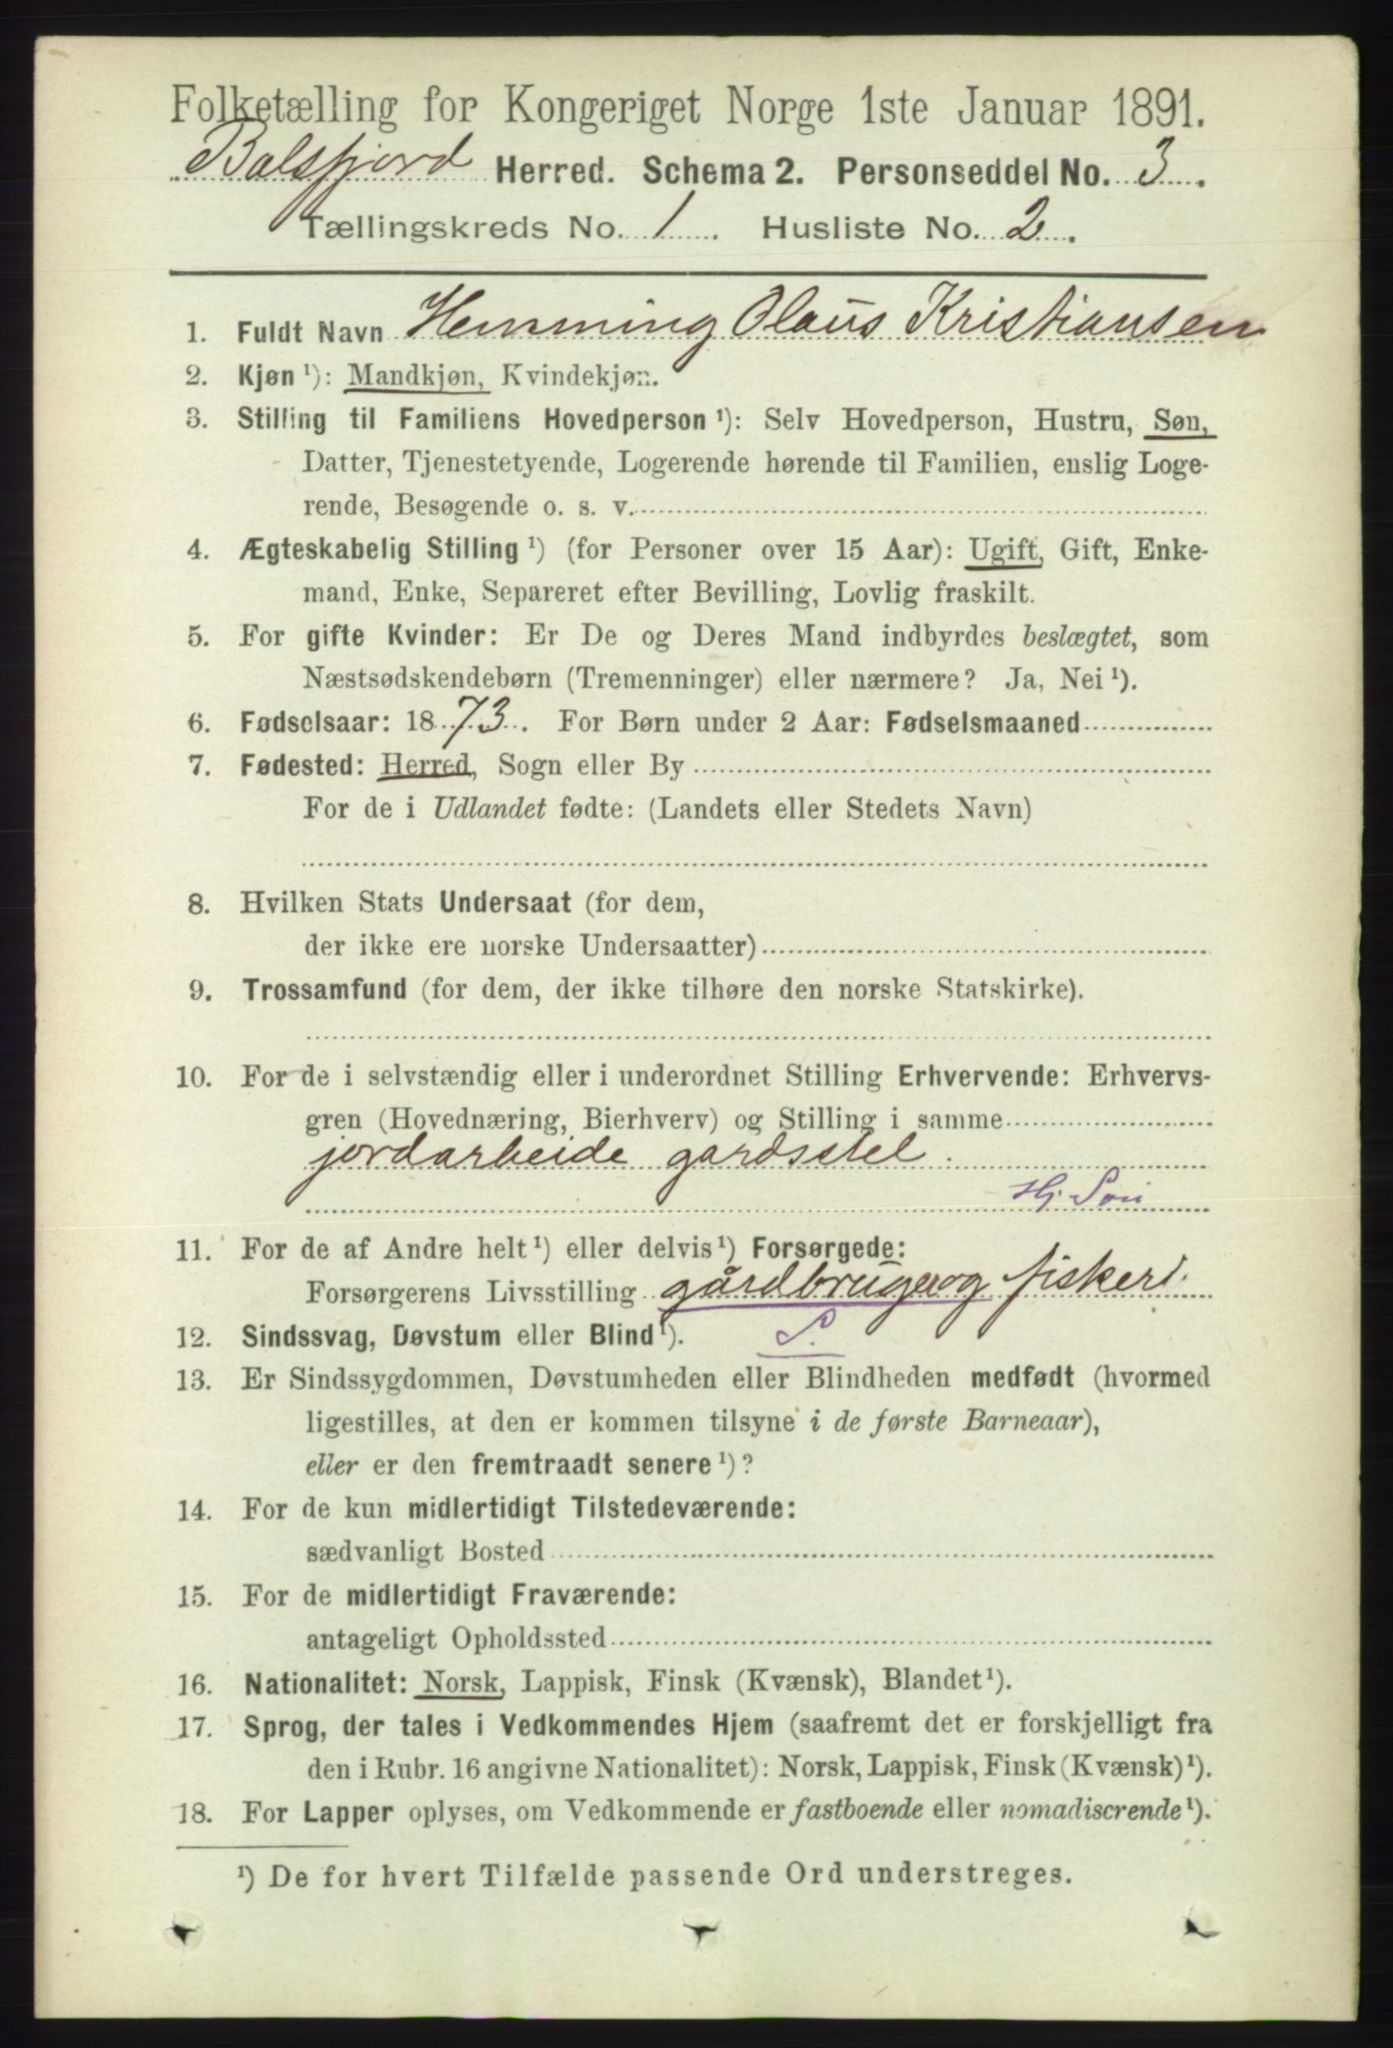 Folketælling for Kongeriget Norge 1ste Januar 1891.
Balsfjord Herred. Schema 2. Personseddel No. 3.
Tællingskreds No. 1. Husliste No. 2.
1. Fuldt Navn Hemming Olaus Kristiansen
2. Kjøn ¹): Mandkjøn, Kvindekjøn.
3. Stilling til Familiens Hovedperson ¹): Selv Hovedperson, Hustru, Søn,
Datter, Tjenestetyende, Logerende hørende til Familien, enslig Loge-
rende, Besøgende o. s. v.
4. Ægteskabelig Stilling ¹) (for Personer over 15 Aar): Ugift, Gift, Enke-
mand, Enke, Separeret efter Bevilling, Lovlig fraskilt.
5. For gifte Kvinder: Er De og Deres Mand indbyrdes beslægtet, som
Næstsødskendebørn (Tremenninger) eller nærmere? Ja, Nei ¹).
6. Fødselsaar: 1873. For Børn under 2 Aar: Fødselsmaaned
7. Fødested: Herred, Sogn eller By
For de i Udlandet fødte: (Landets eller Stedets Navn)
8. Hvilken Stats Undersaat (for dem,
der ikke ere norske Undersaatter)
9. Trossamfund (for dem, der ikke tilhøre den norske Statskirke).
10. For de i selvstændig eller i underordnet Stilling Erhvervende: Erhvervs-
gren (Hovednæring, Bierhverv) og Stilling i samme
jordarbeide gardsstel.
Hj. Søn
11. For de af Andre helt ¹) eller delvis ¹) Forsørgede:
Forsørgerens Livsstilling gårdbruger og fiskeri.
12. Sindssvag, Døvstum eller Blind ¹). S.
13. Er Sindssygdommen, Døvstumheden eller Blindheden medfødt (hvormed
ligestilles, at den er kommen tilsyne i de første Barneaar),
eller er den fremtraadt senere ¹)?
14. For de kun midlertidigt Tilstedeværende:
sædvanligt Bosted
15. For de midlertidigt Fraværende:
antageligt Opholdssted
16. Nationalitet: Norsk, Lappisk, Finsk (Kvænsk), Blandet ¹).
17. Sprog, der tales i Vedkommendes Hjem (saafremt det er forskjelligt fra
den i Rubr. 16 angivne Nationalitet): Norsk, Lappisk, Finsk (Kvænsk) ¹).
18. For Lapper oplyses, om Vedkommende er fastboende eller nomadiserende ¹).
¹) De for hvert Tilfælde passende Ord understreges.